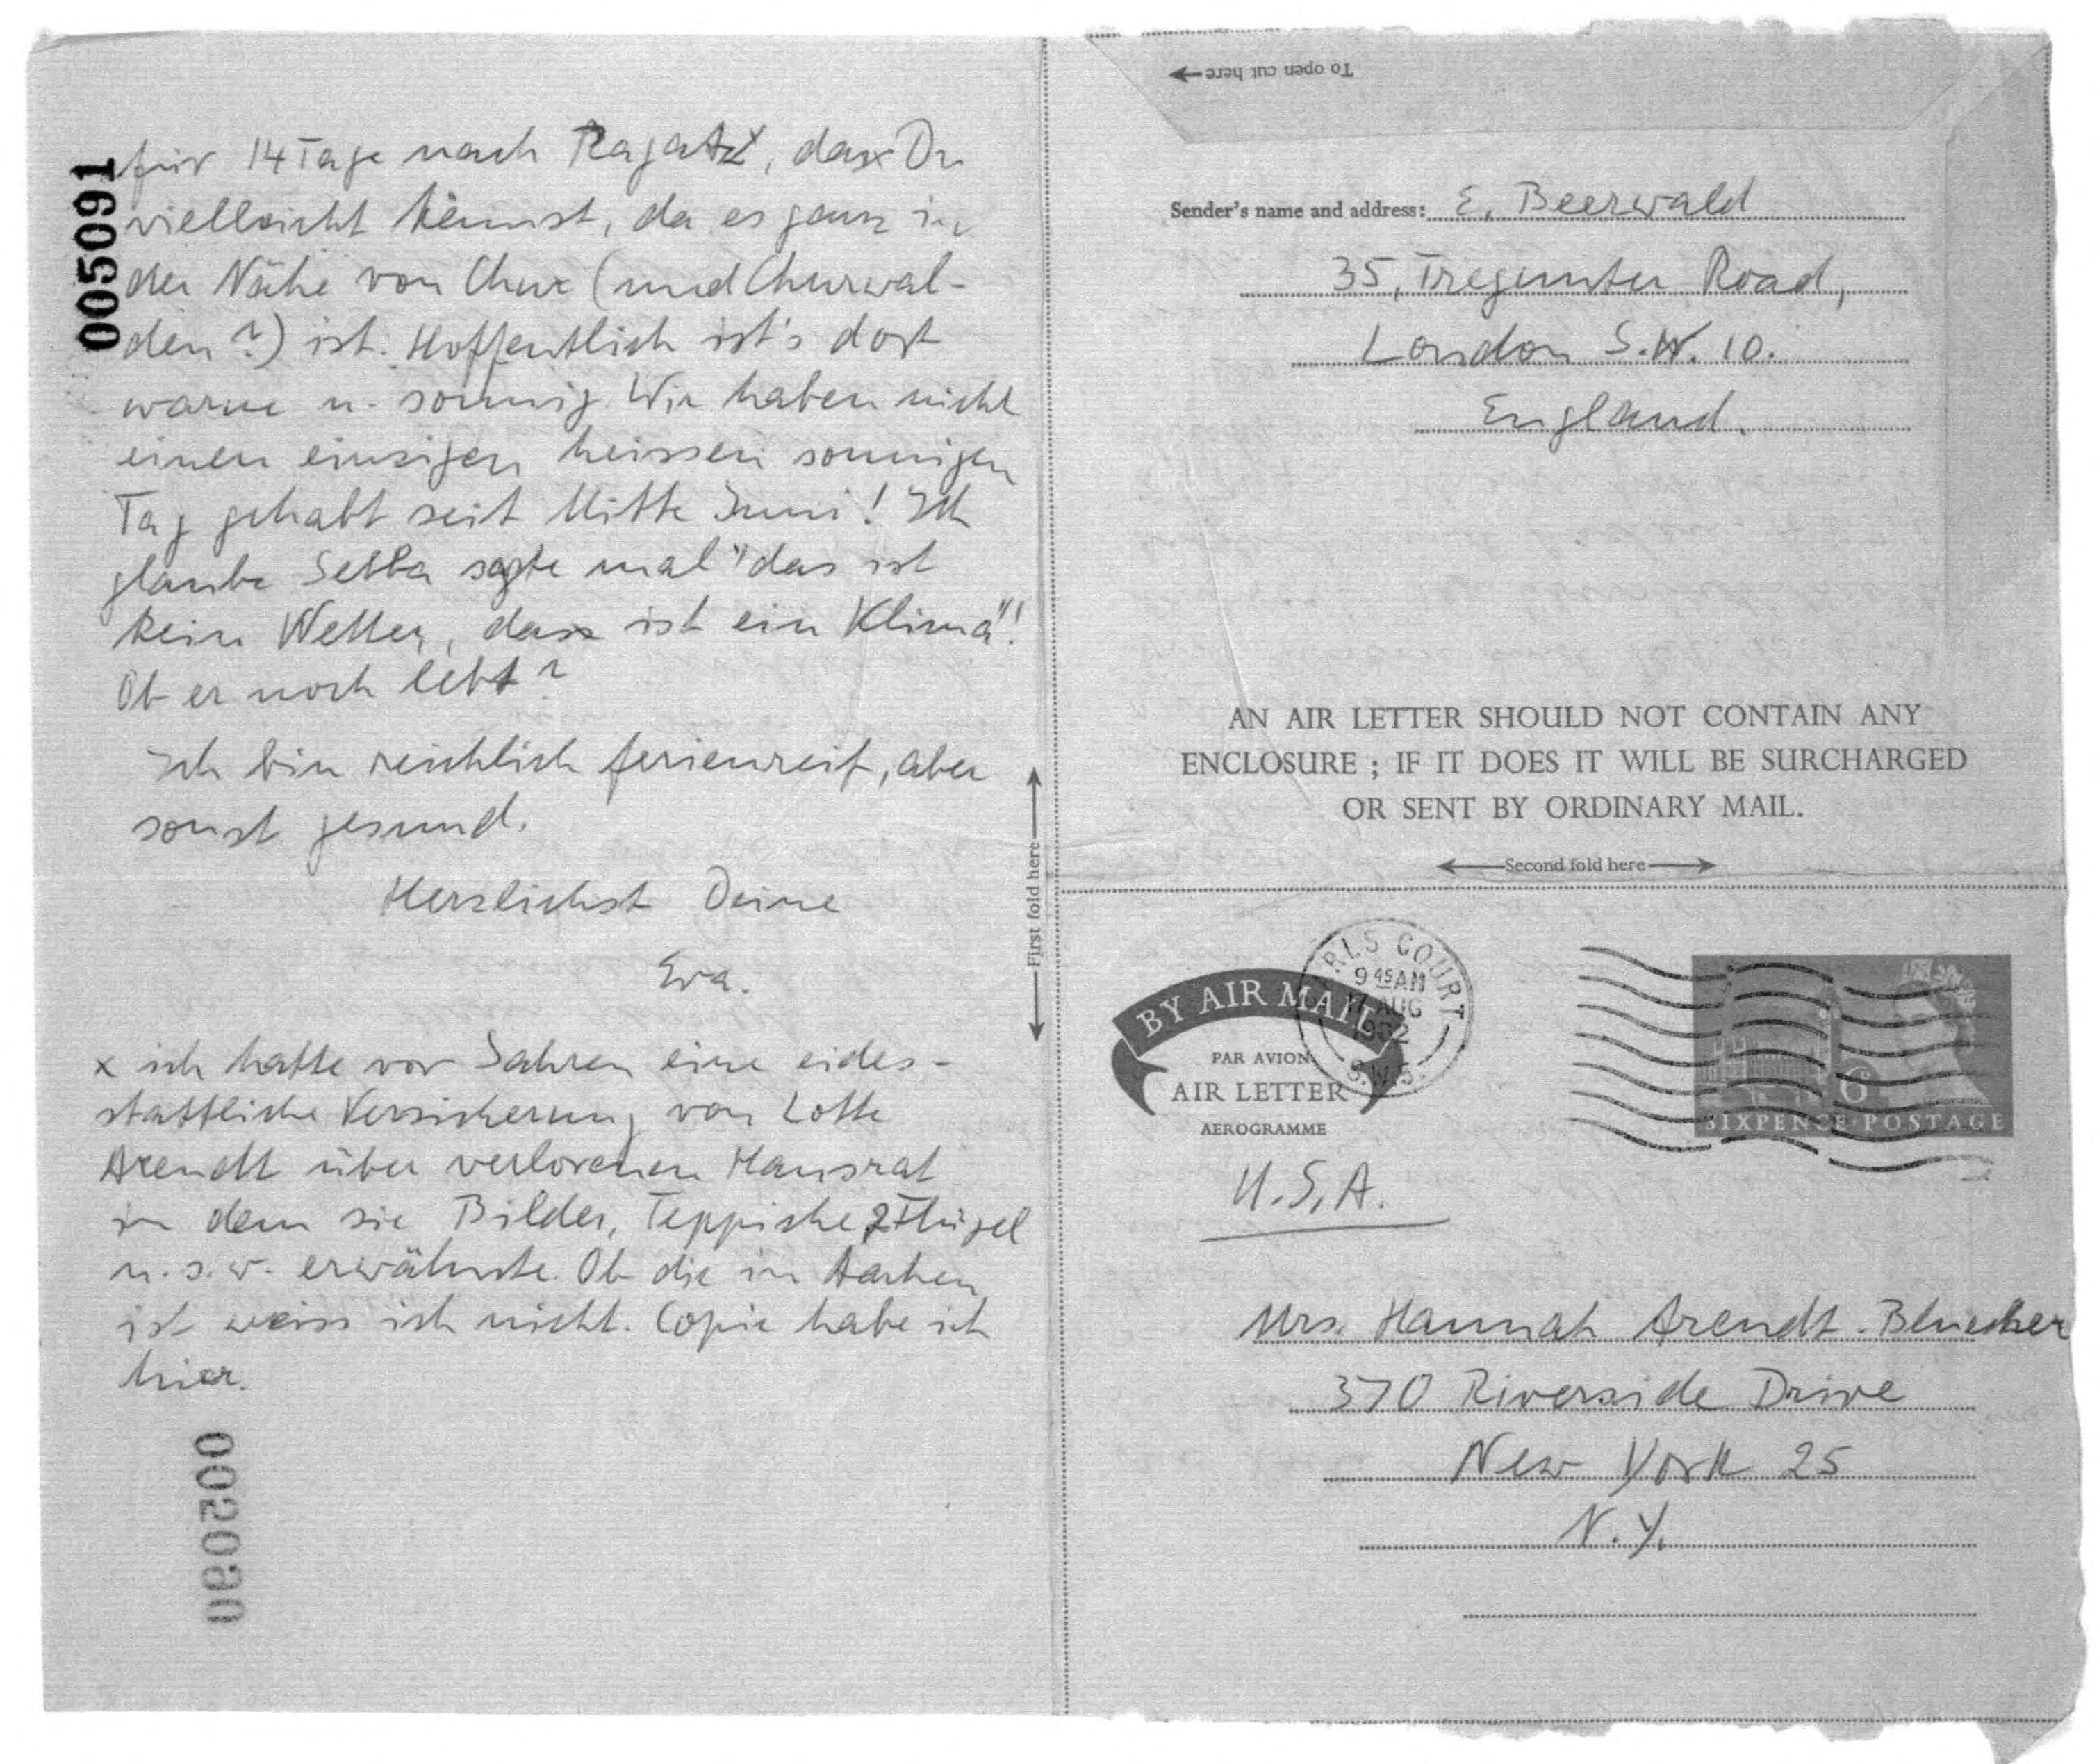 005091
für 14 Tage nach Ragatz, dass Du
vielleicht kennst, da es ganz in
der Nähe von Chur (und Churwal-
den?) ist. Hoffentlich ist's dort
warm u. sonnig. Wir haben nicht
einen einzigen heissen sonnigen
Tag gehabt seit Mitte Juni! Ich
glaube sagte mal "das ist
kein Wetter, dass ist ein Klima"!
Ob er noch lebt?
Ich bin reichlich ferienreif, aber
sonst gesund.
Herzlichst Deine
Eva.
x ich hatte vor Jahren eine eides-
stattliche Versicherung von Lotte
Arendt über verlorenen Hausrat
in dem sie Bilder, Teppiche, 2 Flügel
u.s.w. erwähnte. Ob die in Aachen
ist weiss ich nicht. Copie habe ich
hier.
002080
First fold here
To open cut here
Sender's name and address: E. Beerwald
35, Tregunter Road,
London S.W. 10.
England.
AN AIR LETTER SHOULD NOT CONTAIN ANY
ENCLOSURE ; IF IT DOES IT WILL BE SURCHARGED
OR SENT BY ORDINARY MAIL.
Second fold here
BY AIR MAIL
PAR AVION
AIR LETTER
AEROGRAMME
RLS COURT
9 45 AM
AUG
S.W.5.
6D
SIXPENCE·POSTAGE
U.S.A.
Mrs. Hannah Arendt-Bluecher
370 Riverside Drive
New York 25
N.Y.